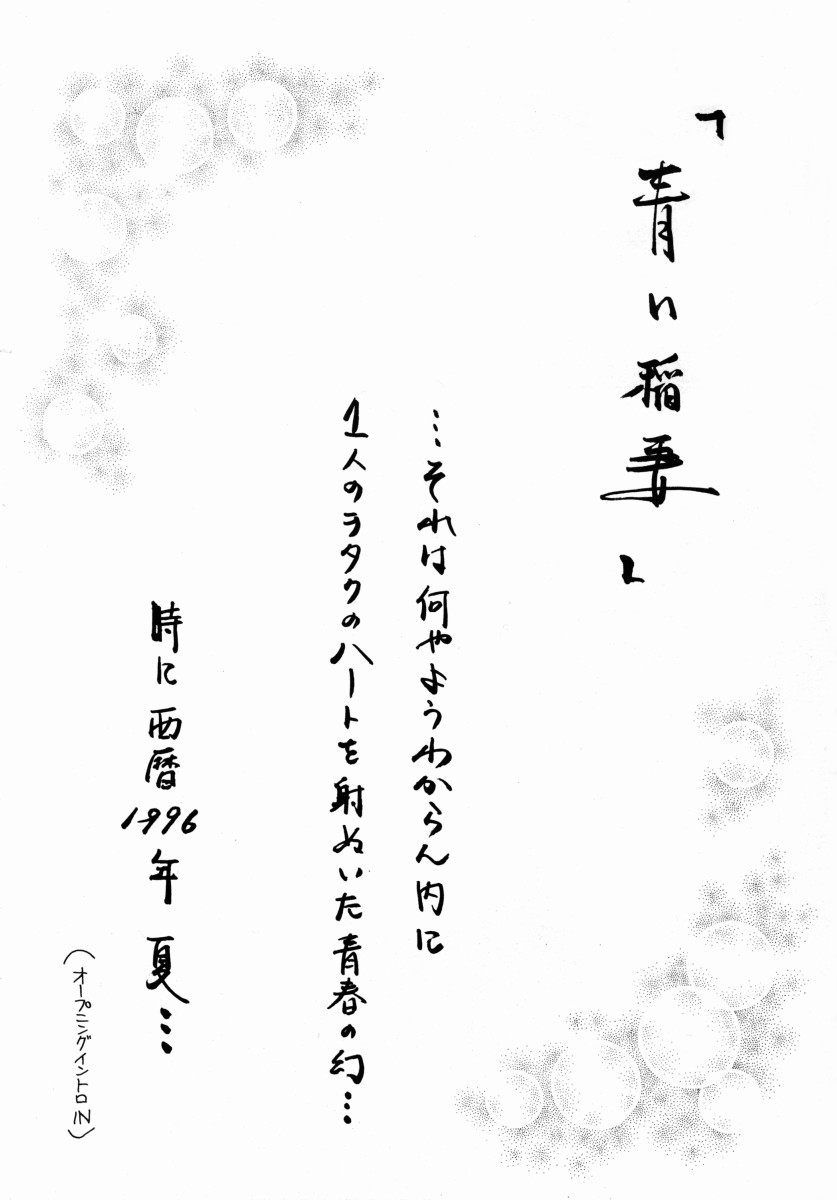 「青い稲妻」
…それは何やようわからん内に
1人のヲタクのハートを射ぬいた青春の幻…
時に西暦1996年 夏…
(オープニングイントロIN)